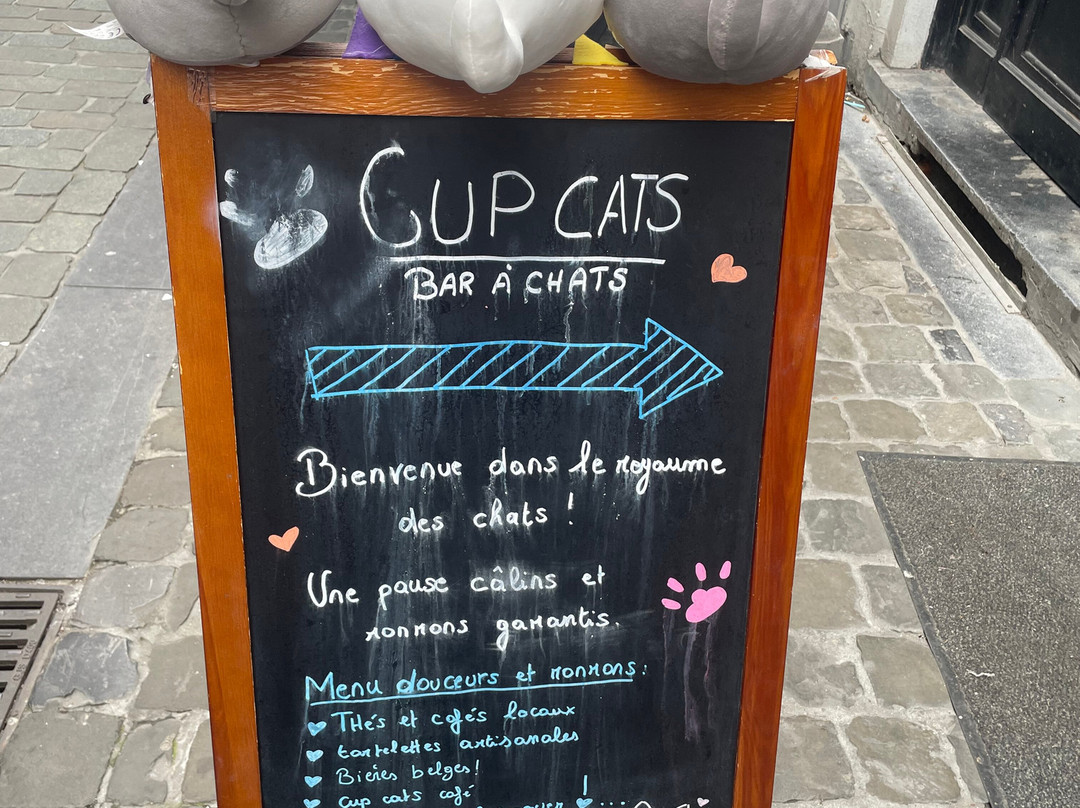 CUP CATS
BAR À CHATS
Bienvenue dans le royaume
des chats !
Une pause câlins et
ronrons garantis.
Menu douceurs et ronrons :
THés et cafés locaux
tartelettes artisanales
Bières belges !
cup cats café